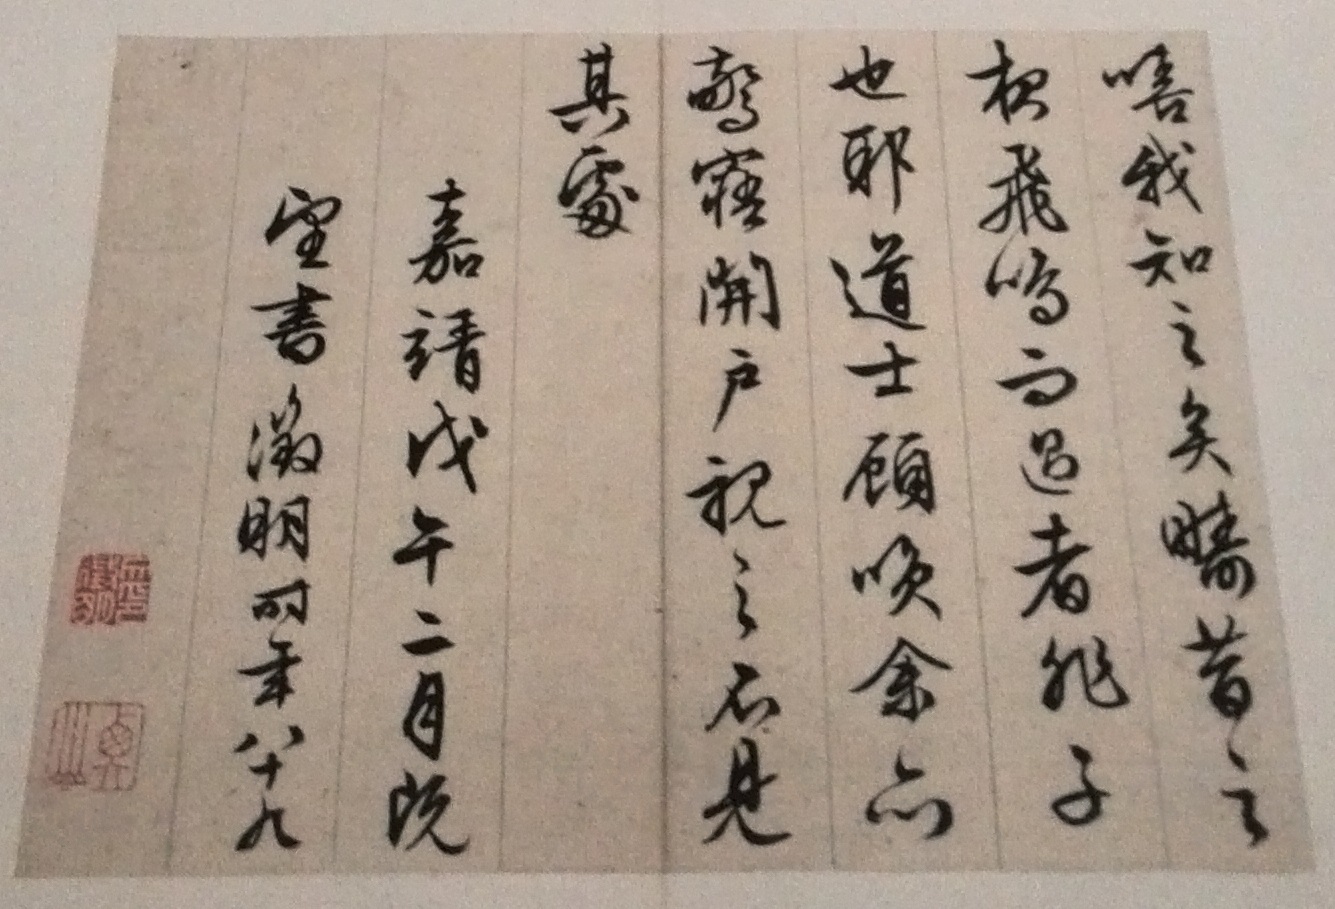 嘻我知之矣疇昔之
夜飛鳴而過者非子
也耶道士顧咲余亦
驚寤開戶視之不見
其處
嘉靖戊午二月既
望書徵明時年八十九